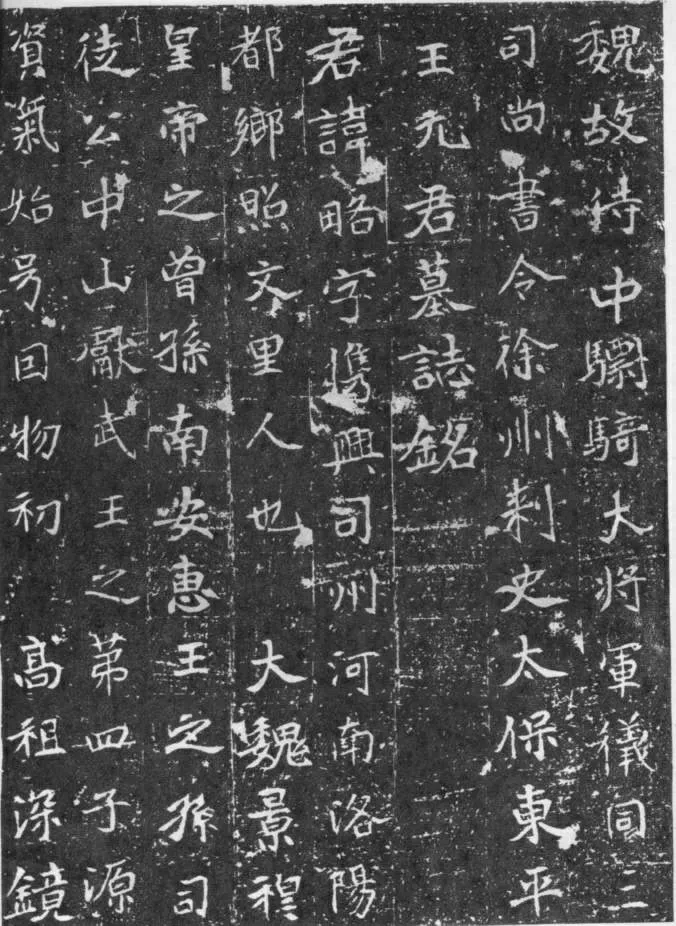 魏故侍中驃騎大將軍儀同三
司尚書令徐州刺史太保東平
王元君墓誌銘
君諱略字儁興司州河南洛陽
都鄉照文里人也 大魏景穆
皇帝之曾孫南安惠王之孫司
徒公中山獻武王之苐四子源
資氣始号回物初 高祖深鏡